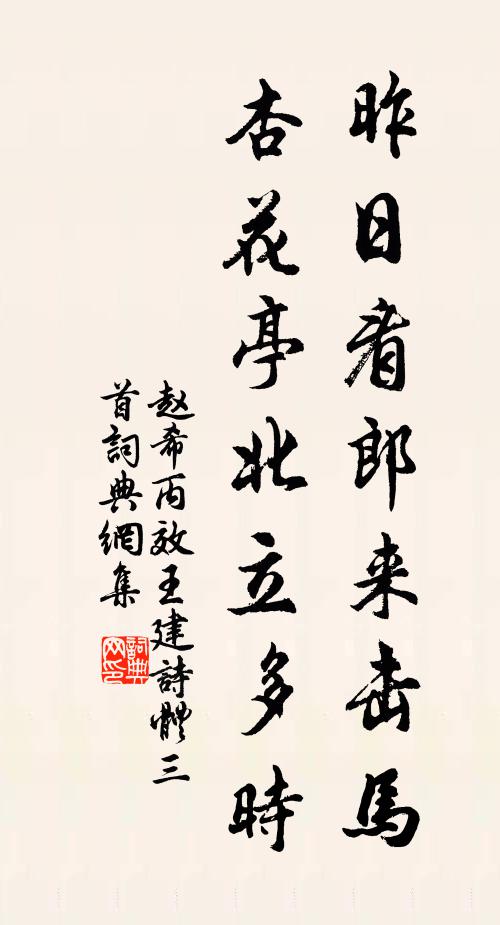 昨日看郎来击馬
杏花亭北立多時
赵希丙效王建詩體三
首詞典網集
詞典网印